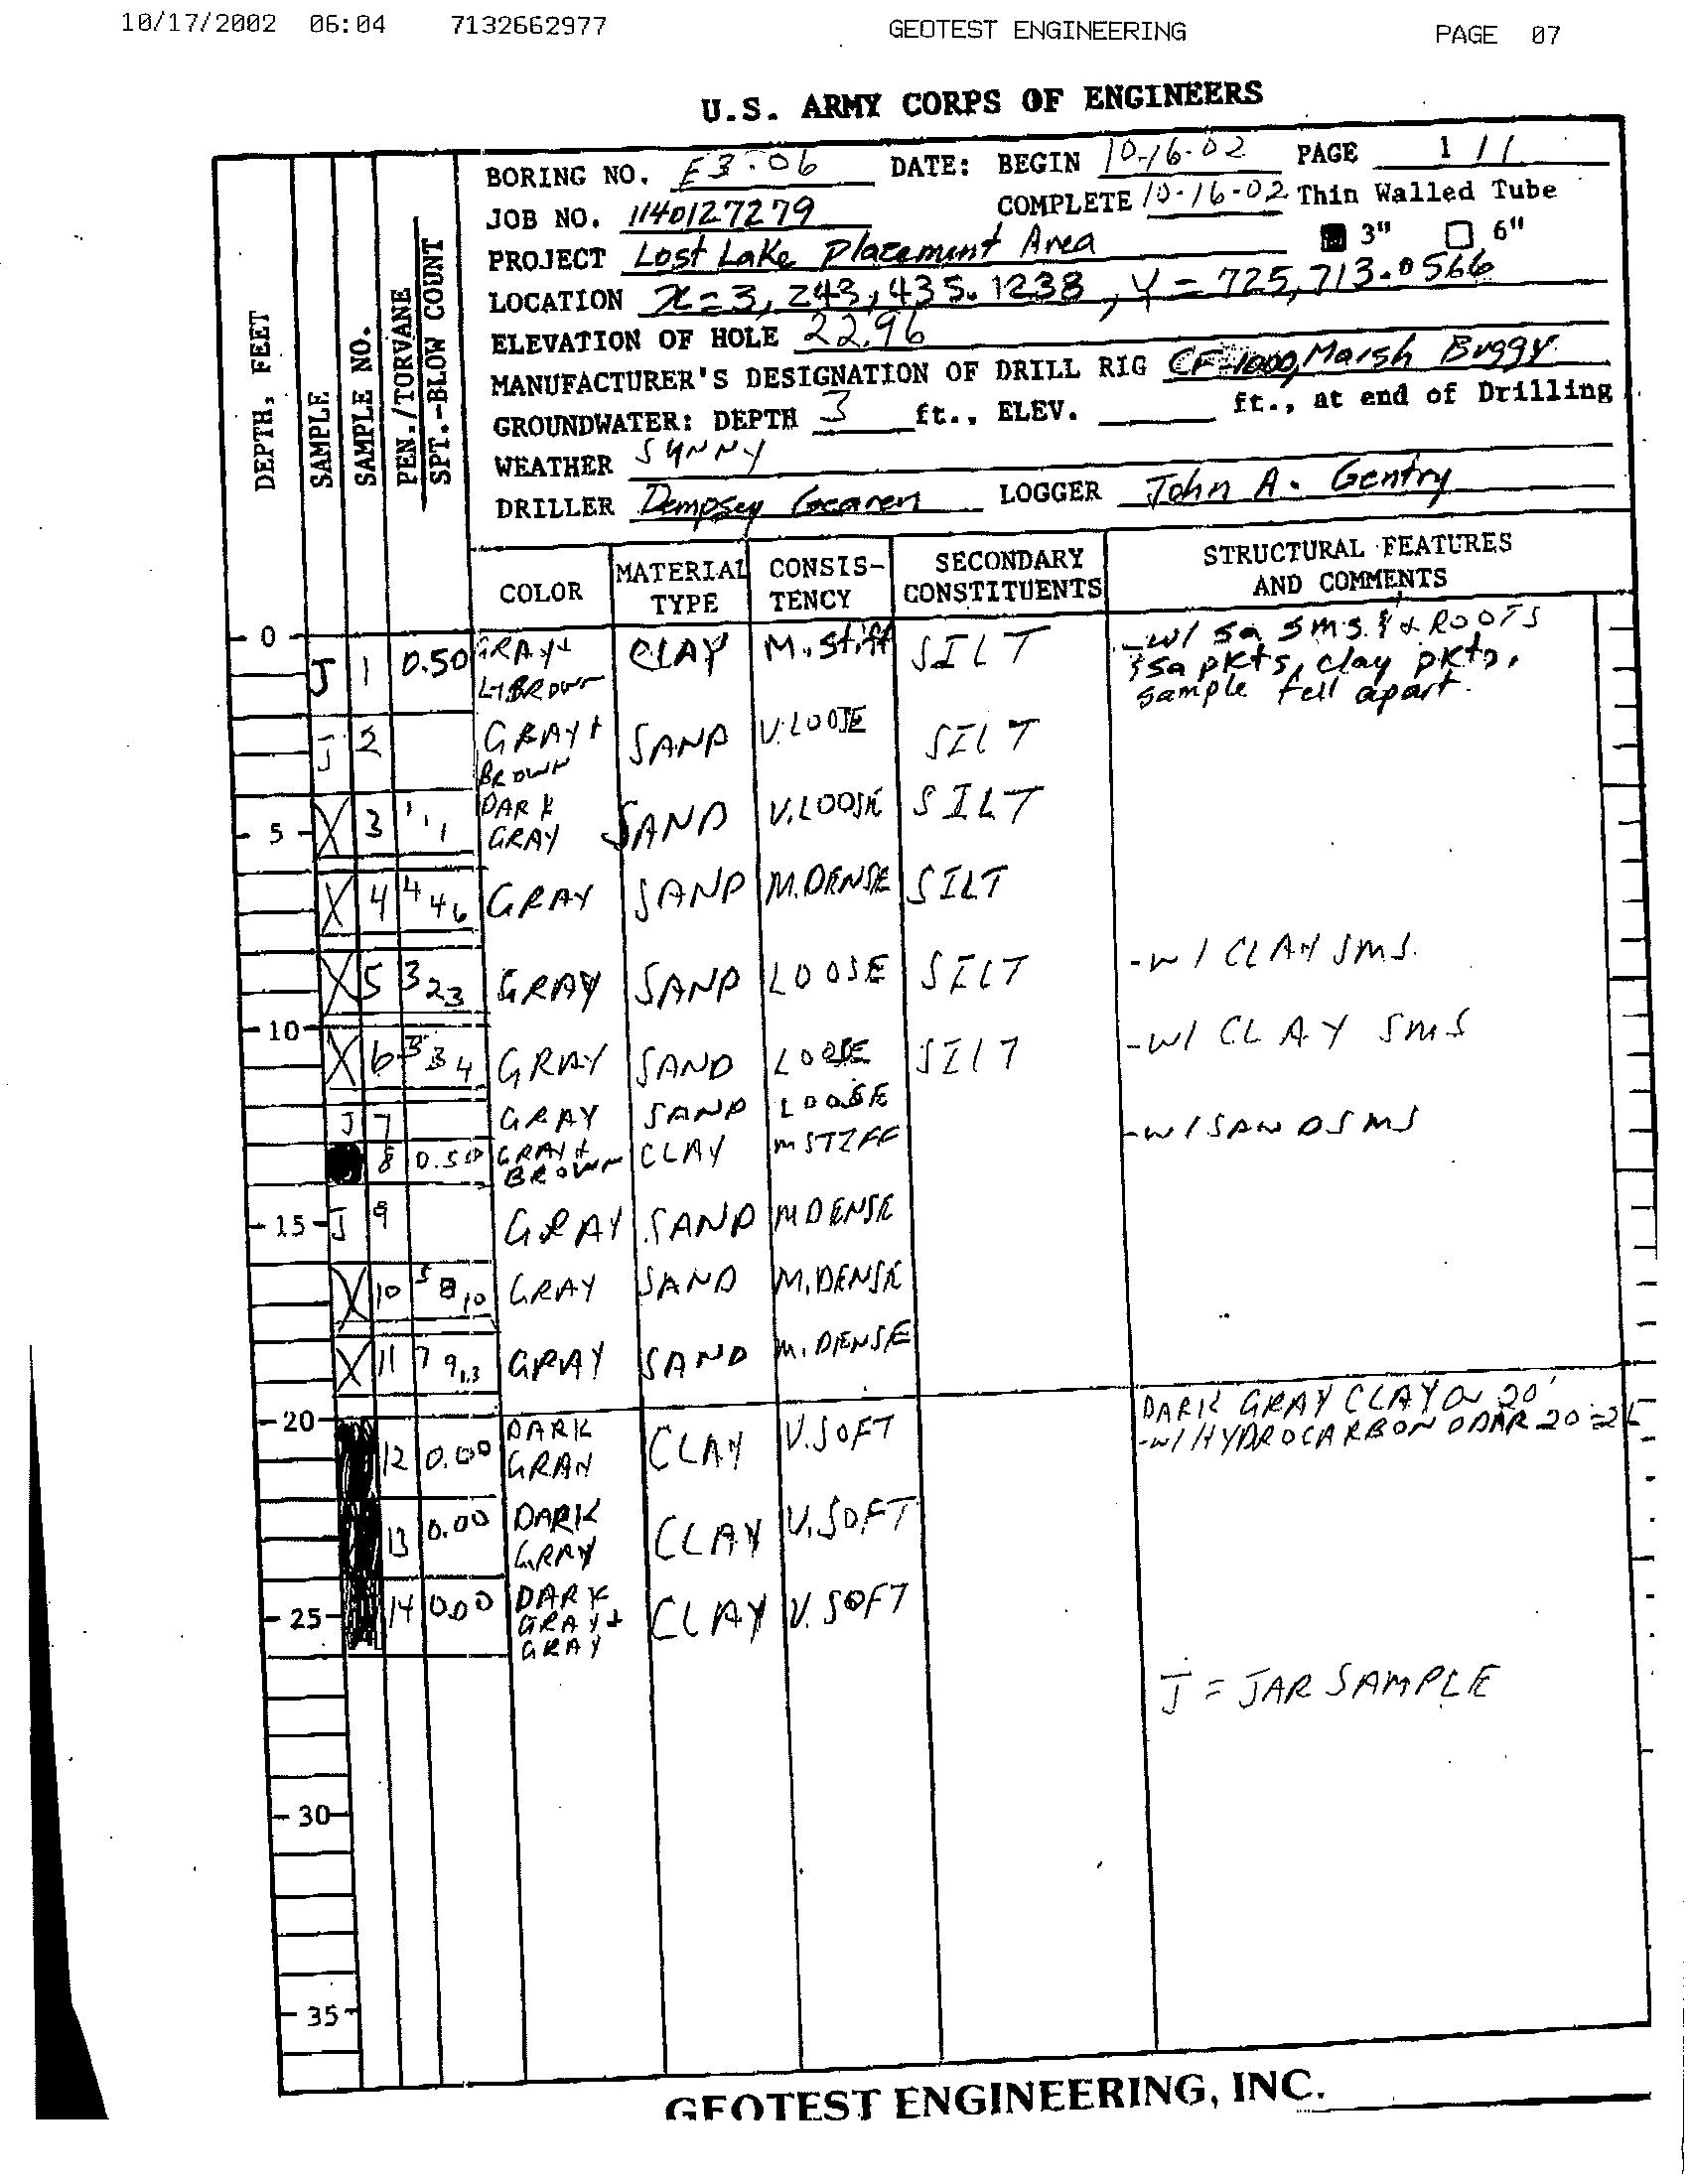 10/17/2002 06:04 7132662977 GEOTEST ENGINEERING PAGE 07
U.S. ARMY CORPS OF ENGINEERS
BORING NO. E3-06 DATE: BEGIN 10-16-02 PAGE 1 / 1
JOB NO. 1140127279 COMPLETE 10-16-02 Thin Walled Tube
PROJECT Lost Lake Placement Area 3" 6"
LOCATION X=3,243,435.1238, Y=725,713.0566
ELEVATION OF HOLE 22.96
MANUFACTURER'S DESIGNATION OF DRILL RIG CF-1000, Marsh Buggy
GROUNDWATER: DEPTH 3 ft., ELEV. ft., at end of Drilling
WEATHER SUNNY
DRILLER Dempsey LOGGER John A. Gentry
DEPTH, FEET
SAMPLE
SAMPLE NO.
PEN./TORVANE
SPT.-BLOW COUNT
COLOR MATERIAL TYPE CONSIS-TENCY SECONDARY CONSTITUENTS STRUCTURAL FEATURES AND COMMENTS
0 J 1 0.50 GRAY+ CLAY M. Stiff SILT -W/ Sa SMS. & ROOTS
LTBROWN sa pkts, clay pkts,
sample fell apart.
J 2 GRAY+ SAND V.LOOSE SILT
BROWN
5 X 3 1 1 1 DARK SAND V.LOOSE SILT
GRAY
X 4 4 4 6 GRAY SAND M.DENSE SILT
X 5 3 2 3 GRAY SAND LOOSE SILT -W/ CLAY SMS.
10 X 6 3 3 4 GRAY SAND LOOSE SILT -W/ CLAY SMS
J 7 GRAY SAND LOOSE
8 0.50 GRAY+ CLAY MSTIFF -W/SAND SMS
BROWN
15 J 9 GRAY SAND MDENSE
X 10 5 8 10 GRAY SAND M.DENSE
X 11 7 9 13 GRAY SAND M.DENSE
20 12 0.00 DARK CLAY V.SOFT DARK GRAY CLAY @ 20'
GRAY -W/HYDROCARBON ODAR 20-26
13 0.00 DARK CLAY V.SOFT
GRAY
25 14 0.00 DARK CLAY V.SOFT
GRAY+
GRAY
J = JAR SAMPLE
30
35
GEOTEST ENGINEERING, INC.